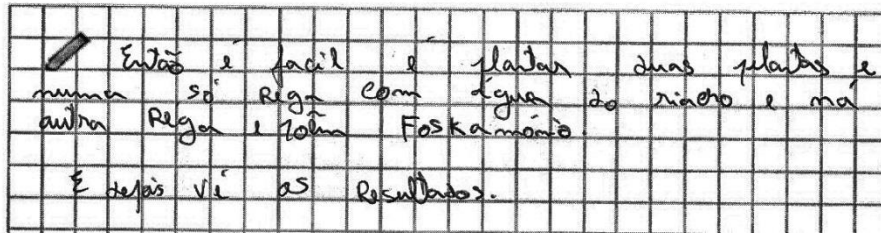 Então é facil é plantar duas plantas e
numa só Rega com água do riacho e na
outra Rega e com Foskamónio.
E depois vê os Resultados.